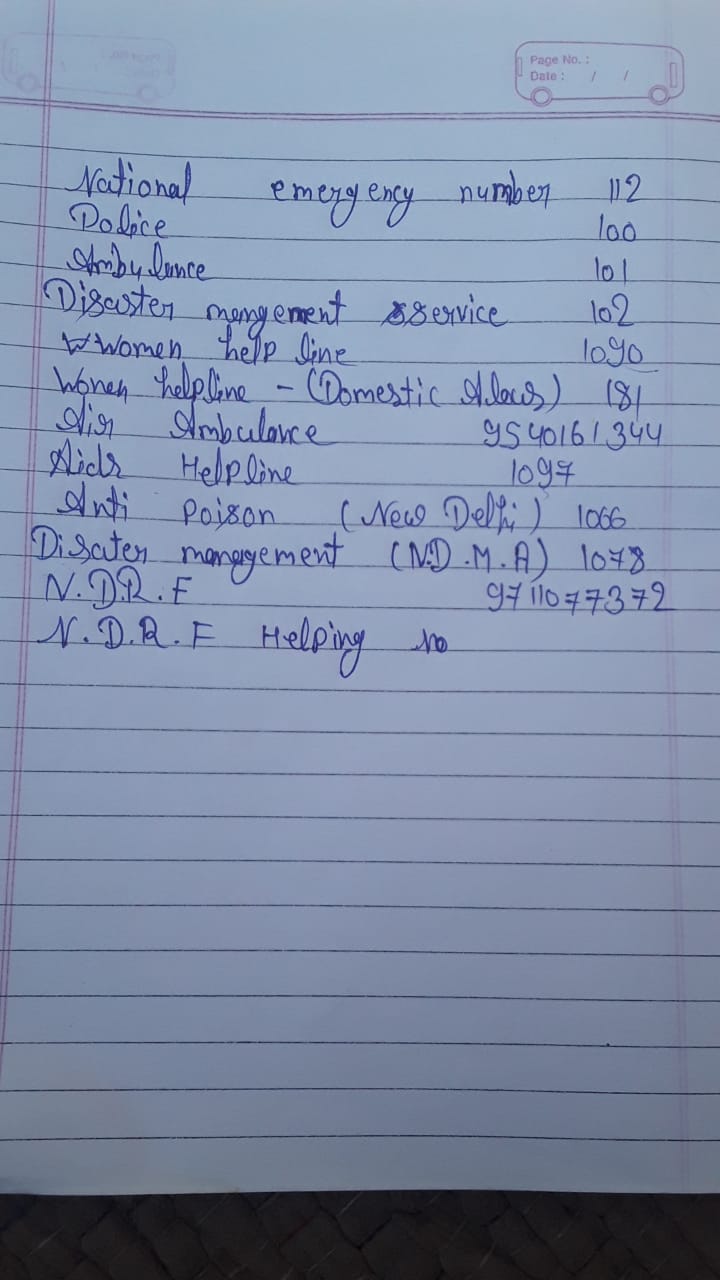 Page No. :
Date : / /
National emergency number 112
Police 100
Ambulance 101
Disaster mengement service 102
Women help line 1090
Women helpline - (Domestic Abuse) 181
Air Ambulance 9540161344
Aids Helpline 1097
Anti poison (New Delhi) 1066
Disater management (N.D.M.A) 1078
N.D.R.F 9711077372
N.D.R.F Helping no